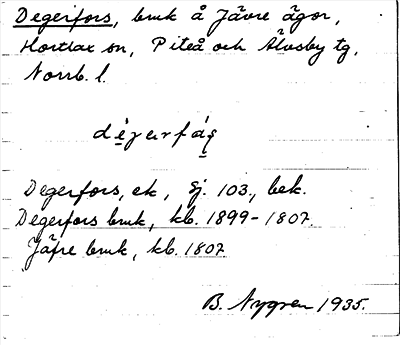 Degerfors, bruk å Jävre ägor,
Hortlax sn, Piteå och Älvsby tg,
Norrb. l.
Degerfors, ek, Sj. 103, bek.
Degerfors bruk, kb. 1899-1807.
Jäfre bruk, kb. 1807
B. Nygren 1935.